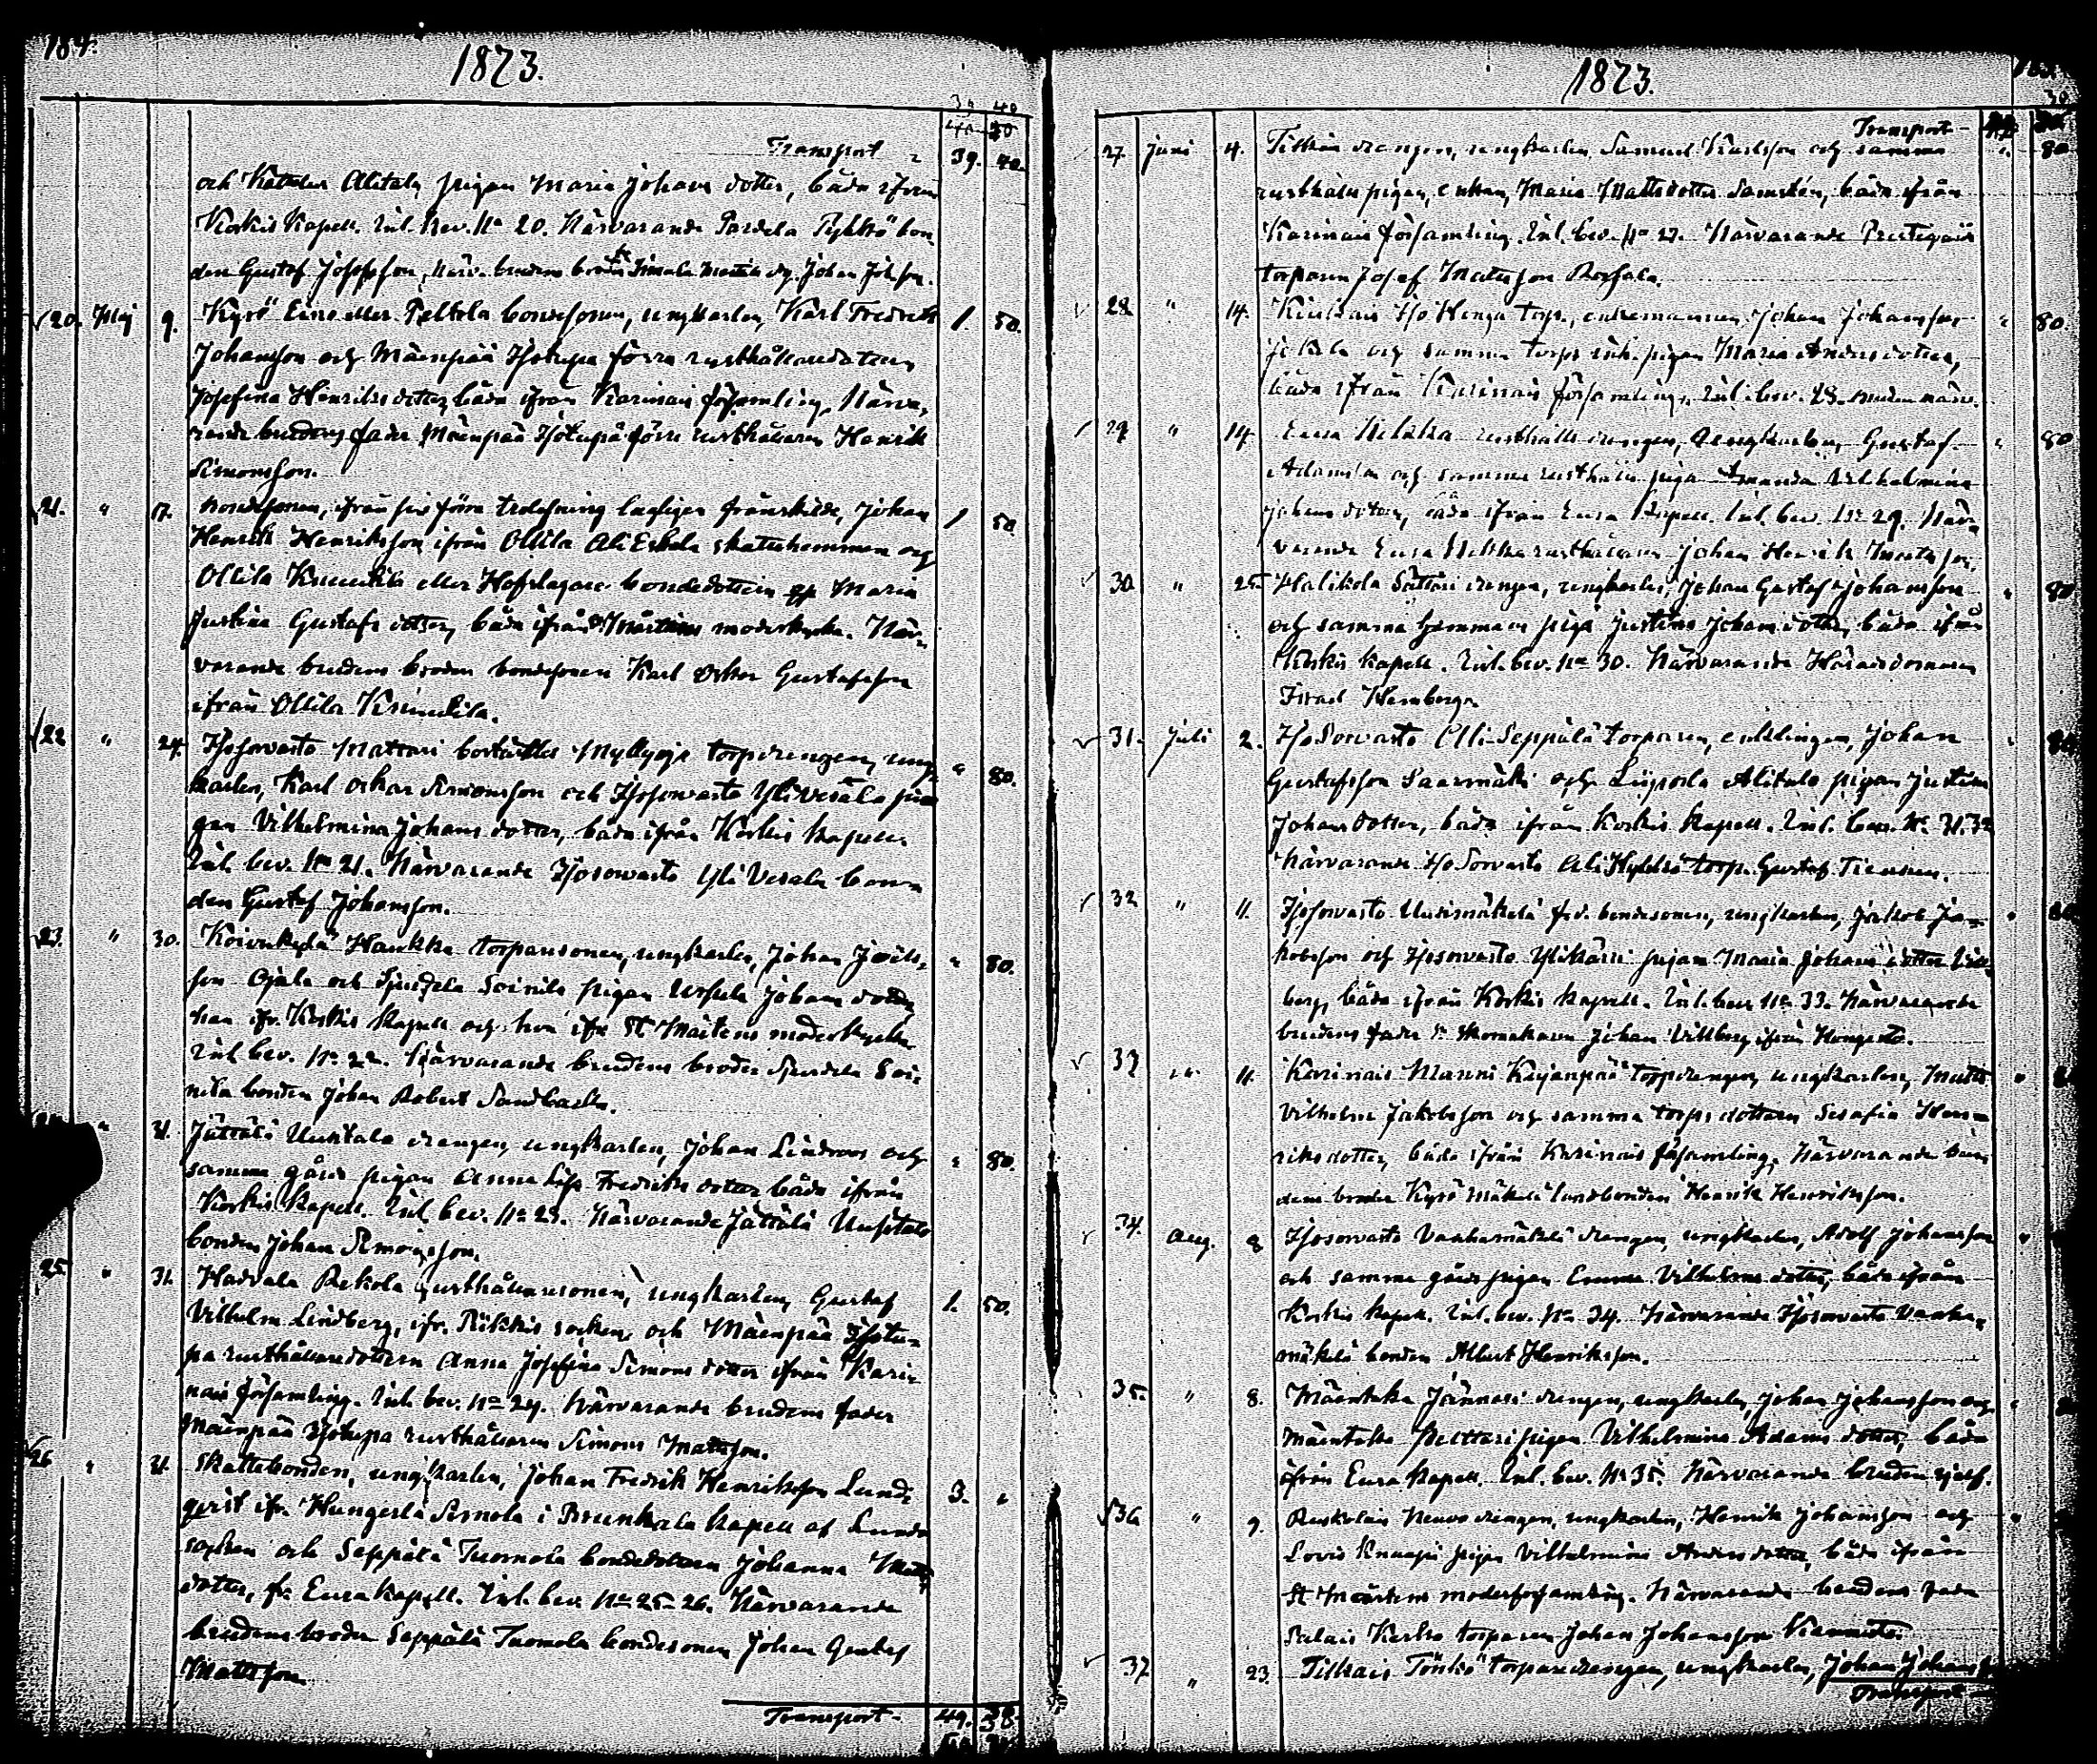 184.
1873.
39 40
40 50
Transport „ 39. 40.
och Kalela Alitalo pigan Maria Johans dotter, båda ifrån
Koskis Kapell. Inl. bev. No 20. Närvarande Pardela Pyhkö bon-
den Gustaf Josefsson, närv. brudens Simala Johan
20. Maj 9. Kyrö Eino eller Peltola bondesonen, ungkarlen, Karl Fredrik 1. 50.
Johansson och Mäenpää Isotupa förra rusthållaredottern
Josefina Henriksdotter, båda ifrån Karinais församling. Närva-
rande brudens fader Mäenpää Isotupa förre rusthållaren Henrik
Simonsson.
21. „ 17. Bondesonen, ifrån sin förra trolofning lagligen frånskilde, Johan 1 50.
Henrik Henriksson ifrån Ollila Ali Eskola skattehemman och
Ollila Knuutila eller Hofslagare bondedottern Maria
Justina Gustafs dotter, båda ifrån St Mårtens moderkyrka. När-
varande brudens broder bondesonen Karl Oskar Gustafsson
ifrån Ollila Knuutila.
22 „ 24. Isosorvasto Mattari Myllyoja torpdrengen, ung- „ 80.
karlen, Karl Oskar Simonsson och Isosorvasto Yli Vesala pi-
gan Vilhelmina Johans dotter, båda ifrån Koskis kapell.
Inl. bev. No 21. Närvarande Isosorvasto Yli Vesala bon-
den Gustaf Johansson.
23. „ 30. Koivukylä Haukka torparesonen, ungkarlen, Johan „ 80.
son Ojala och Tjurdela Soinila pigan Ursula Johans dotter
han ifr. Koskis kapell och hon ifr. St Mårtens moderkyrka
Inl. bev. No 22. Närvarande brudens broder Tjurdela Soi-
nila bonden Johan Robert Sandbacka.
„ 31. Jättälä Uusitalo drengen, ungkarlen, Johan Lindroos och „ 80.
samma gårds pigan Anna Lisa Fredriks dotter båda ifrån
Koskis Kapell. Inl. bev. No 23. Närvarande Jättälä Uusitalo
bonden Johan Simonsson.
25 „ 31. Hadvala Rekola rusthållaresonen, ungkarlen, Gustaf 1. 50.
Vilhelm Lindberg, ifr. Piikkis socken, och Mäenpää Isotu-
pa rusthållaredottern Anna Josefina Simons dotter ifrån Kari-
nais församling. Inl. bev. No 24. Närvarande brudens fader
Mäenpää Isotupa rusthållaren Simon Mattsson.
26 „ 31. Skattebonden, ungkarlen, Johan Fredrik Henriksson Lund- 3. „
qvist ifr. Hungerlä Simola i Prunkkala kapell af Lundo
socken och Seppälä Tuomola bondedottern Johanna Matts
dotter, fr. Eura kapell. Inl. bev. No 25-26. Närvarande
brudens broder Seppälä Tuomola bondesonen Johan Gustaf
Mattsson
Transport - 49.
1873.
Transport -
27. Juni 4. Tiskais drengen, ungkarlen Samuel Karlsson och samma „ 80.
rusthålls pigan, enkan, Maria Mattsdotter Samstén, båda ifrån
Karinais församling. Inl. bev. No 27. Närvarande
torparen Josef Mattsson
28 „ 14. Isohenga torp., enkemannen Johan Johansson „ 80.
Jokela och samma torps inh. pigan Maria Andersdotter,
båda ifrån Karinais församling. Inl. bev. 28.
29 „ 14. Eura Hekka rusthålls drengen, ungkarlen, Gustaf „ 80
Adamsson och samma rusthålls piga Amanda Vilhelmina
Johans dotter, båda ifrån Eura Kapell. Inl. bev. No 29. När-
varande Eura Hekka rusthållaren Johan Henrik Mattsson.
30 „ 25 Halikola Sättäri drengen, ungkarlen, Johan Gustaf Johansson „ 80
och samma hemmans piga Justina Johans dotter, båda ifrån
Koskis kapell. Inl. bev. No 30. Närvarande Häradsdomaren
Israel Hemberg.
31. Juli 2. Iso Sorvasto Olli-Seppälä torparen, enklingen, Johan „ 80
Gustafsson Saarmäki och Liipola Alitalo pigan Justina
Johans dotter, båda ifrån Koskis kapell. Inl. bev. No. 31.32
Närvarande Iso Sorvasto Ali torp. Gustaf
32 „ 11. Isosorvasto Uusimäkelä f.d. bondesonen, ungkarlen, Jakob Ja- „
kobsson och Isosorvasto Ylikärri pigan Maria Johans dotter Vill-
berg, båda ifrån Koskis kapell. Inl. bev. No 33. Närvarande
brudens fader Skomakaren Johan Villberg ifrån Hongisto.
33 „ 11. Karinais Manni Kujanpää torpdrengen, ungkarlen, Matts „
Vilhelm Jakobsson och samma torps dottern Serafia Hen-
riks dotter, båda ifrån Karinais församling. Närvarande bru-
dens broder Kyrö Mäkelä landbonden Henrik Henriksson.
34. Aug. 8 Isosorvasto Vanhamäkelä drengen, ungkarlen, Adolf Johansson „
och samma gårds pigan Emma Vilhelms dotter, båda ifrån
Koskis kapell. Inl. bev. No 34. Närvarande Isosorvasto Vanha-
mäkelä bonden Albert Henriksson.
35 „ 8. Mäentaka Jännäri drengen, ungkarlen, Johan Johansson och „
Mäentaka Pelttari pigan Vilhelmina Adams dotter, båda
ifrån Eura kapell. Inl. bev. No 35 Närvarande bruden sjelf.
36 „ 9. Ruskolais Neuvo drengen, ungkarlen, Henrik Johansson och „
Lovis Knaapi piga Vilhelmina Anders dotter, båda ifrån
St Mårtens moderförsamling. Närvarande brudens fader
torparen Johan Johansson
37 „ 23. Tiskais Tönkö torparedrengen, ungkarlen, Johan Johans
Transport